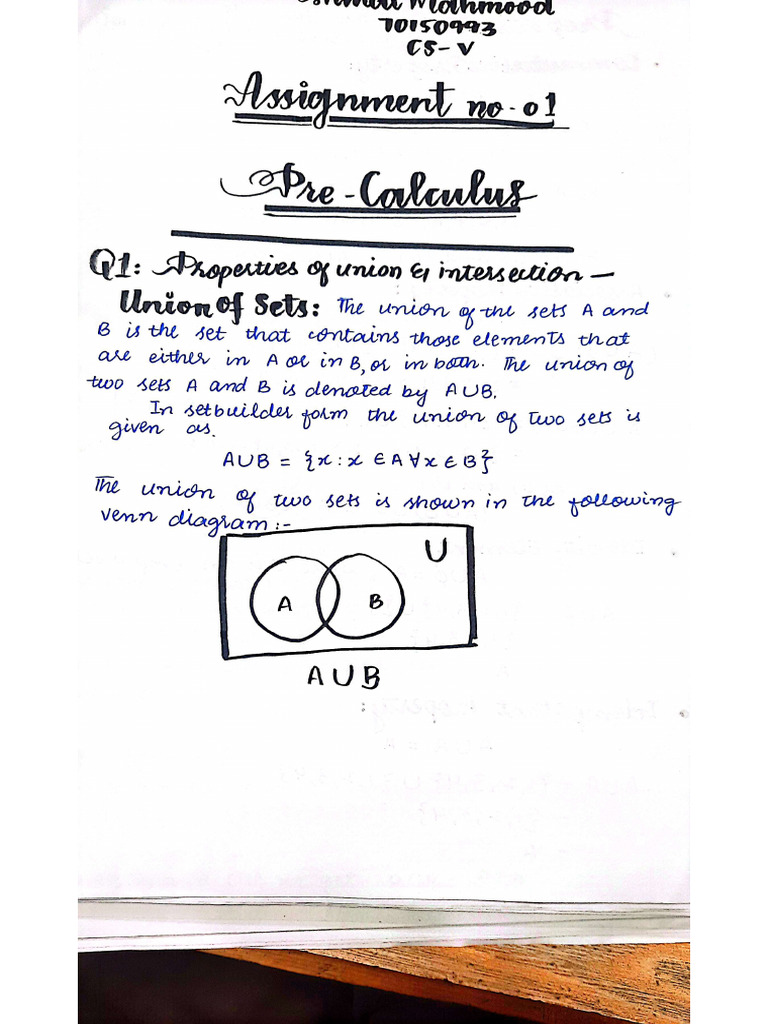 Mahmood
70150993
CS-V
Assignment no-01
Pre-Calculus
Q1: Properties of union & intersection -
Union Of Sets: The union of the sets A and
B is the set that contains those elements that
are either in A or in B, or in both. The union of
two sets A and B is denoted by A∪B.
In setbuilder form the union of two sets is
given as.
A∪B = {x : x ∈ A ∀ x ∈ B}
The union of two sets is shown in the following
venn diagram:-
U
A B
A∪B